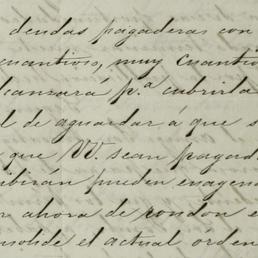 deudas pagaderas con
cuantioso, muy cuantio
lcanzará p.ª cubrirla
l de aguardar á que s
que VV. sean pagad
ibirán pueden enagena
r ahora de rondon e
nsolide el actual órden